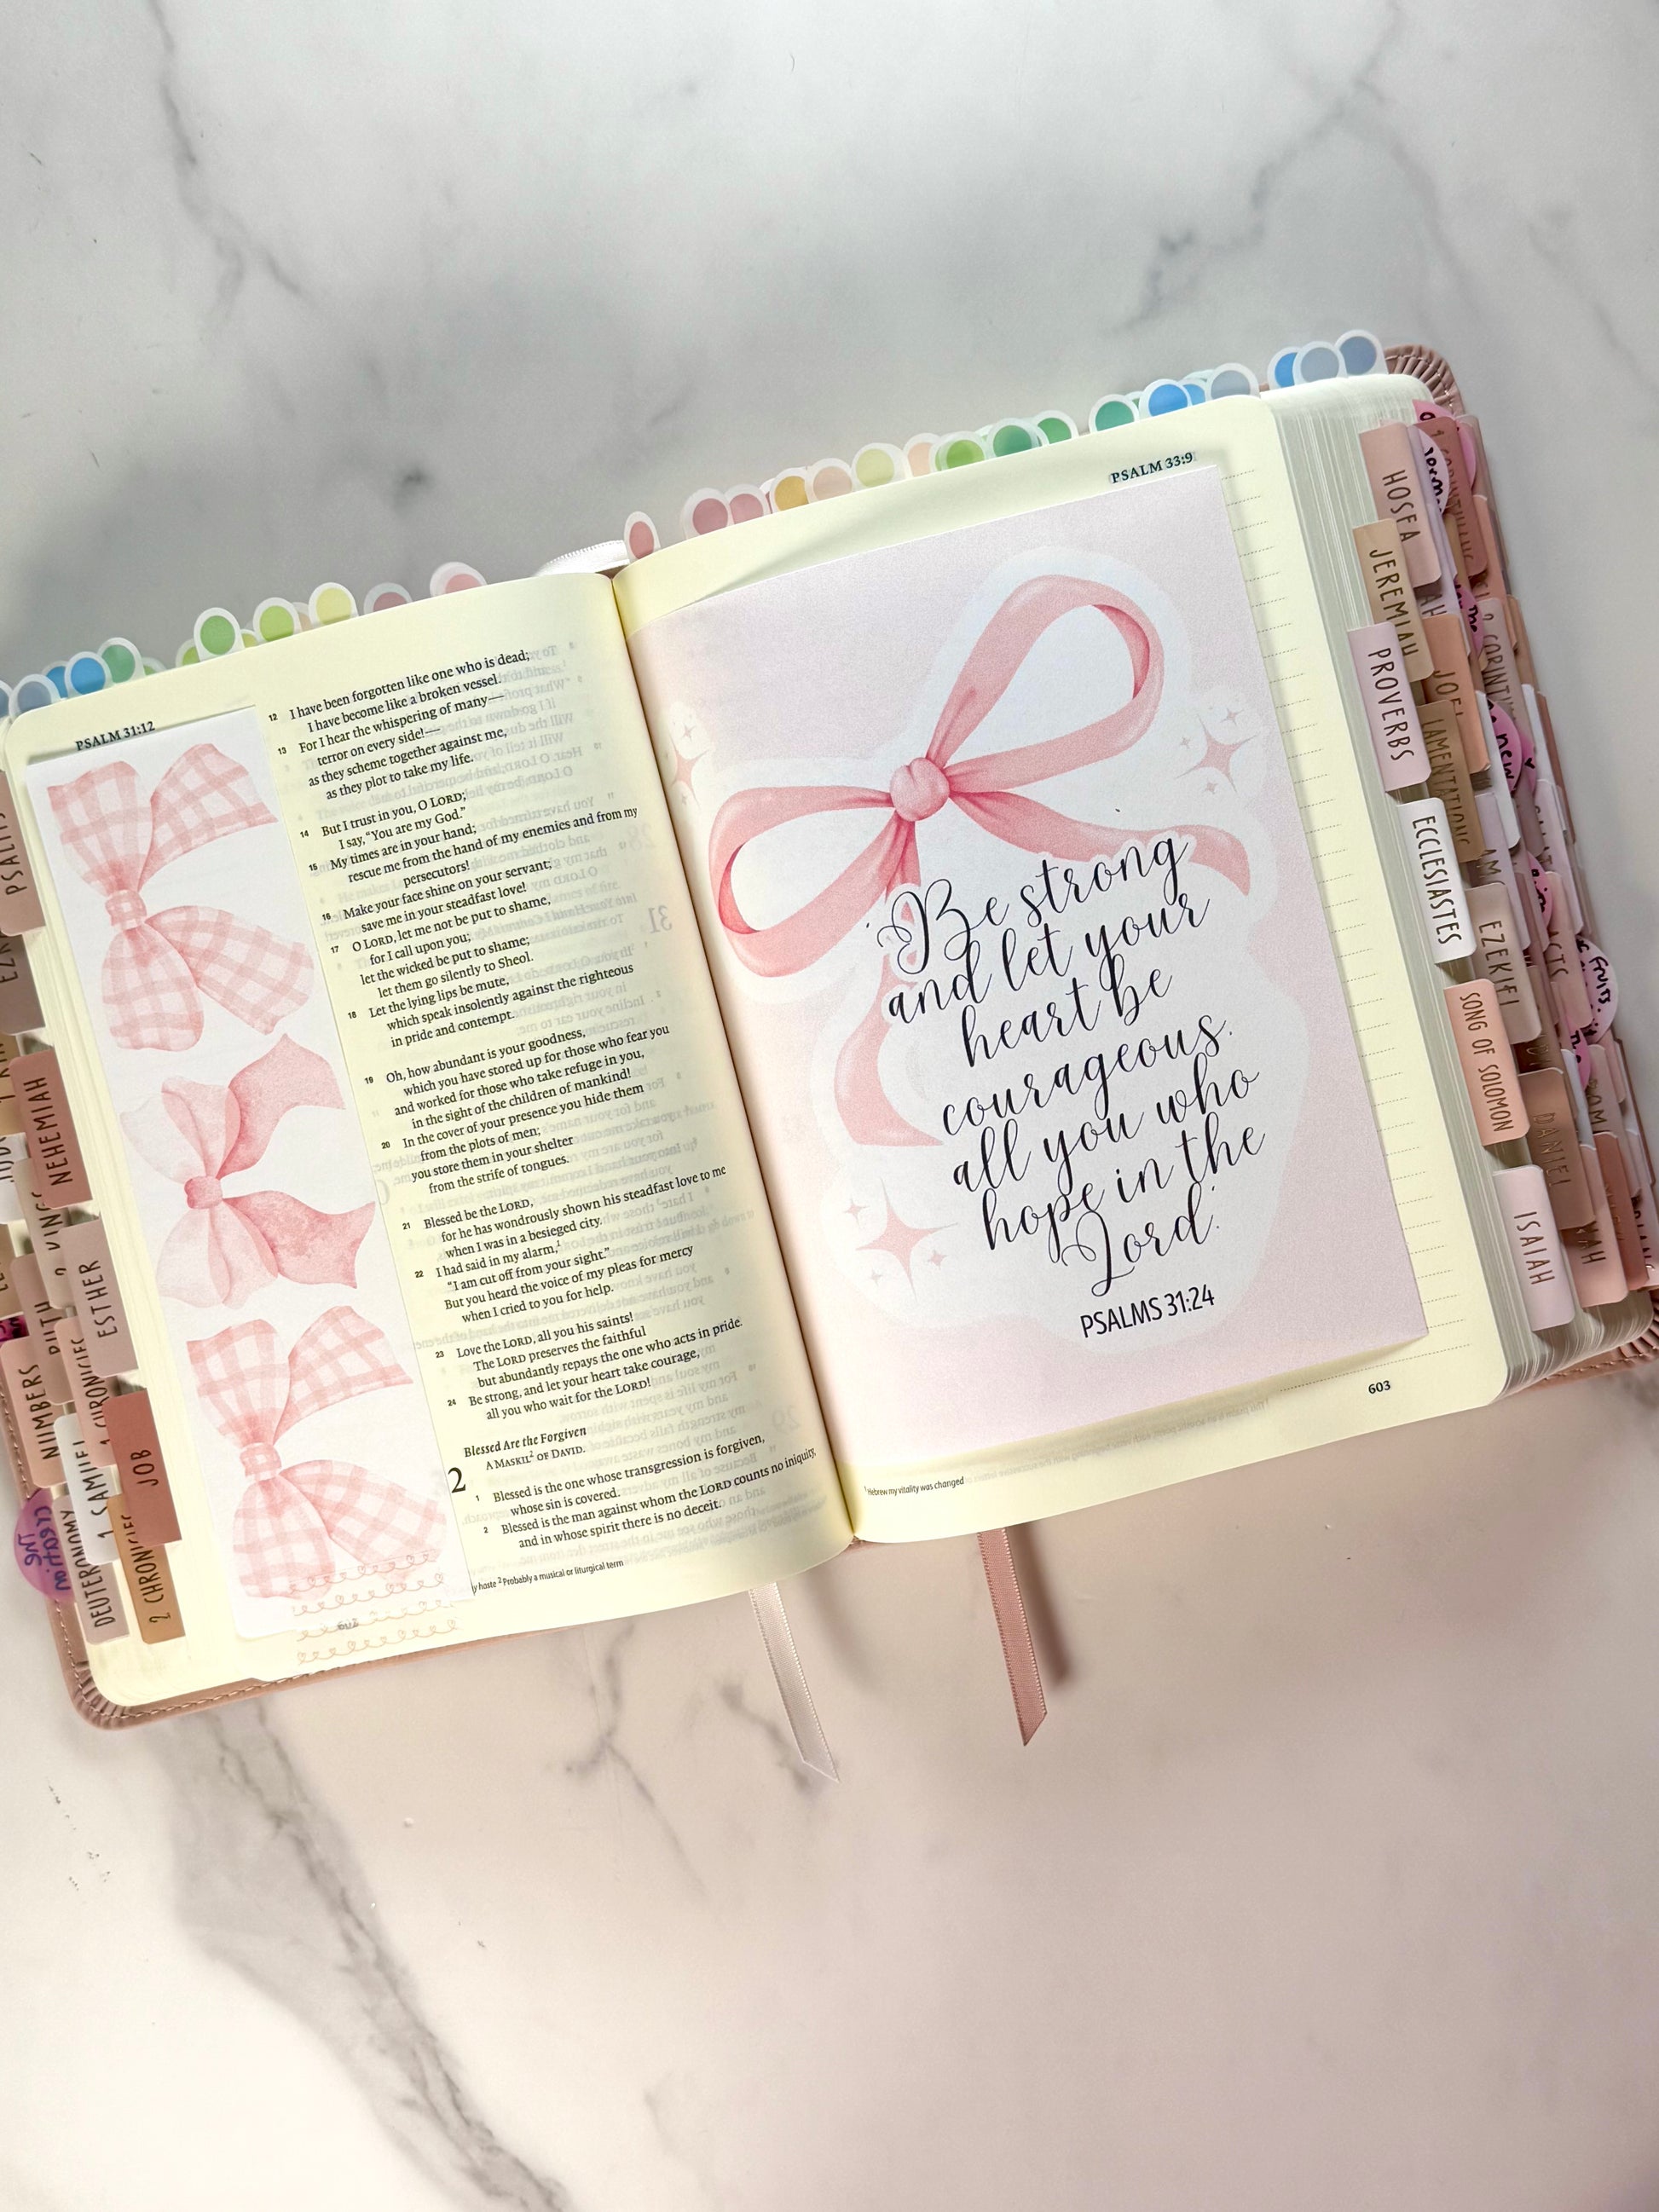 PSALM 31:12
12 I have been forgotten like one who is dead;
I have become like a broken vessel.
13 For I hear the whispering of many—
terror on every side!—
as they scheme together against me,
as they plot to take my life.
14 But I trust in you, O LORD;
I say, “You are my God.”
15 My times are in your hand;
rescue me from the hand of my enemies and from my
persecutors!
16 Make your face shine on your servant;
save me in your steadfast love!
17 O LORD, let me not be put to shame,
for I call upon you;
let the wicked be put to shame;
let them go silently to Sheol.
18 Let the lying lips be mute,
which speak insolently against the righteous
in pride and contempt.
19 Oh, how abundant is your goodness,
which you have stored up for those who fear you
and worked for those who take refuge in you,
in the sight of the children of mankind!
20 In the cover of your presence you hide them
from the plots of men;
you store them in your shelter
from the strife of tongues.
21 Blessed be the LORD,
for he has wondrously shown his steadfast love to me
when I was in a besieged city.
22 I had said in my alarm,1
“I am cut off from your sight.”
But you heard the voice of my pleas for mercy
when I cried to you for help.
23 Love the LORD, all you his saints!
The LORD preserves the faithful
but abundantly repays the one who acts in pride.
24 Be strong, and let your heart take courage,
all you who wait for the LORD!
Blessed Are the Forgiven
A MASKIL2 OF DAVID.
2
1 Blessed is the one whose transgression is forgiven,
whose sin is covered.
2 Blessed is the man against whom the LORD counts no iniquity,
and in whose spirit there is no deceit.
haste 2 Probably a musical or liturgical term
PSALM 33:9
Be strong
and let your
heart be
courageous.
all you who
hope in the
Lord.
PSALMS 31:24
603
1 Hebrew my vitality was changed
PSALMS
NEHEMIAH
ESTHER
RUTH
NUMBERS
1 SAMUEL
JOB
DEUTERONOMY
2 CHRONICLES
1 CHRONICLES
The
creation
HOSEA
JEREMIAH
PROVERBS
JOEL
LAMENTATIONS
ECCLESIASTES
EZEKIEL
SONG OF SOLOMON
DANIEL
ISAIAH
2 CORINTHIANS
ACTS
new
fruits